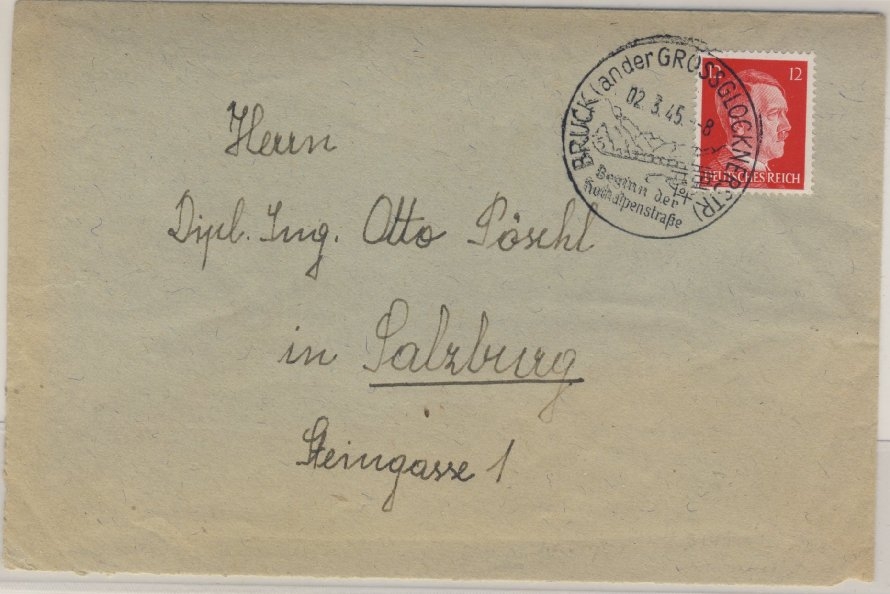 BRUCK (an der GROSSGLOCKNERSTR)
02.3.45.-8
Beginn der
Hochalpenstraße
12 12
DEUTSCHES REICH
Herrn
Dipl. Ing. Otto Pöschl
in Salzburg
Steingasse 1